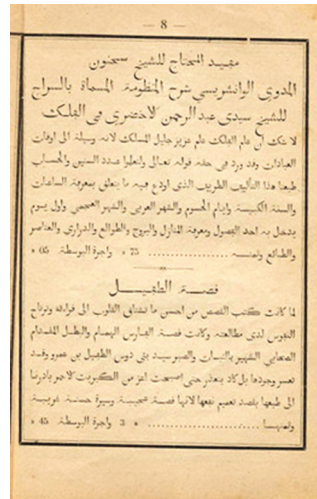 — 8 —
مفيد المحتاج للشيخ سحنون
المدوي الوانشريسي شرح المنظومة المسماة بالسراج
للشيخ سيدي عبد الرحمن الاخضري في الفلك
لا شك ان علم الفلك علم عزيز جليل المسلك لانه وسيلة الى اوقات
العبادات وقد ورد في حقه قوله تعالى ولتعلموا عدد السنين والحساب
طبعنا هذا التأليف الظريف الذي اودع فيه ما يتعلق بمعرفة الساعات
والسنة الكبيسة وايام الحسوم والشهر العربي والشهر العجمي واول يوم
يدخل به احد الفصول ومعرفة المنازل والبروج والطوالع والدراري والعناصر
والطبائع وثمنه ............ 75 » واجرة البوسطة 05 »
قصة الطفيل
لما كانت كتب القصص من احسن ما تشتاق القلوب الى فوائده وترتاح
النفوس لدى مطالعته وكانت قصة الفارس الهمام والبطل المقدام
الصحابي الشهير بالثبات والصبر سيد بني دوس الطفيل بن عمرو وقد
تعسر وجودها بل كاد يتعذر حتى اصبحت اعز من الكبريت الاحمر بادرنا
الى طبعها بقصد تعميم نفعها لانها قصة صحيحة وسيرة حسنة غريبة
وثمنها ............ 3 » واجرة البوسطة 45 »